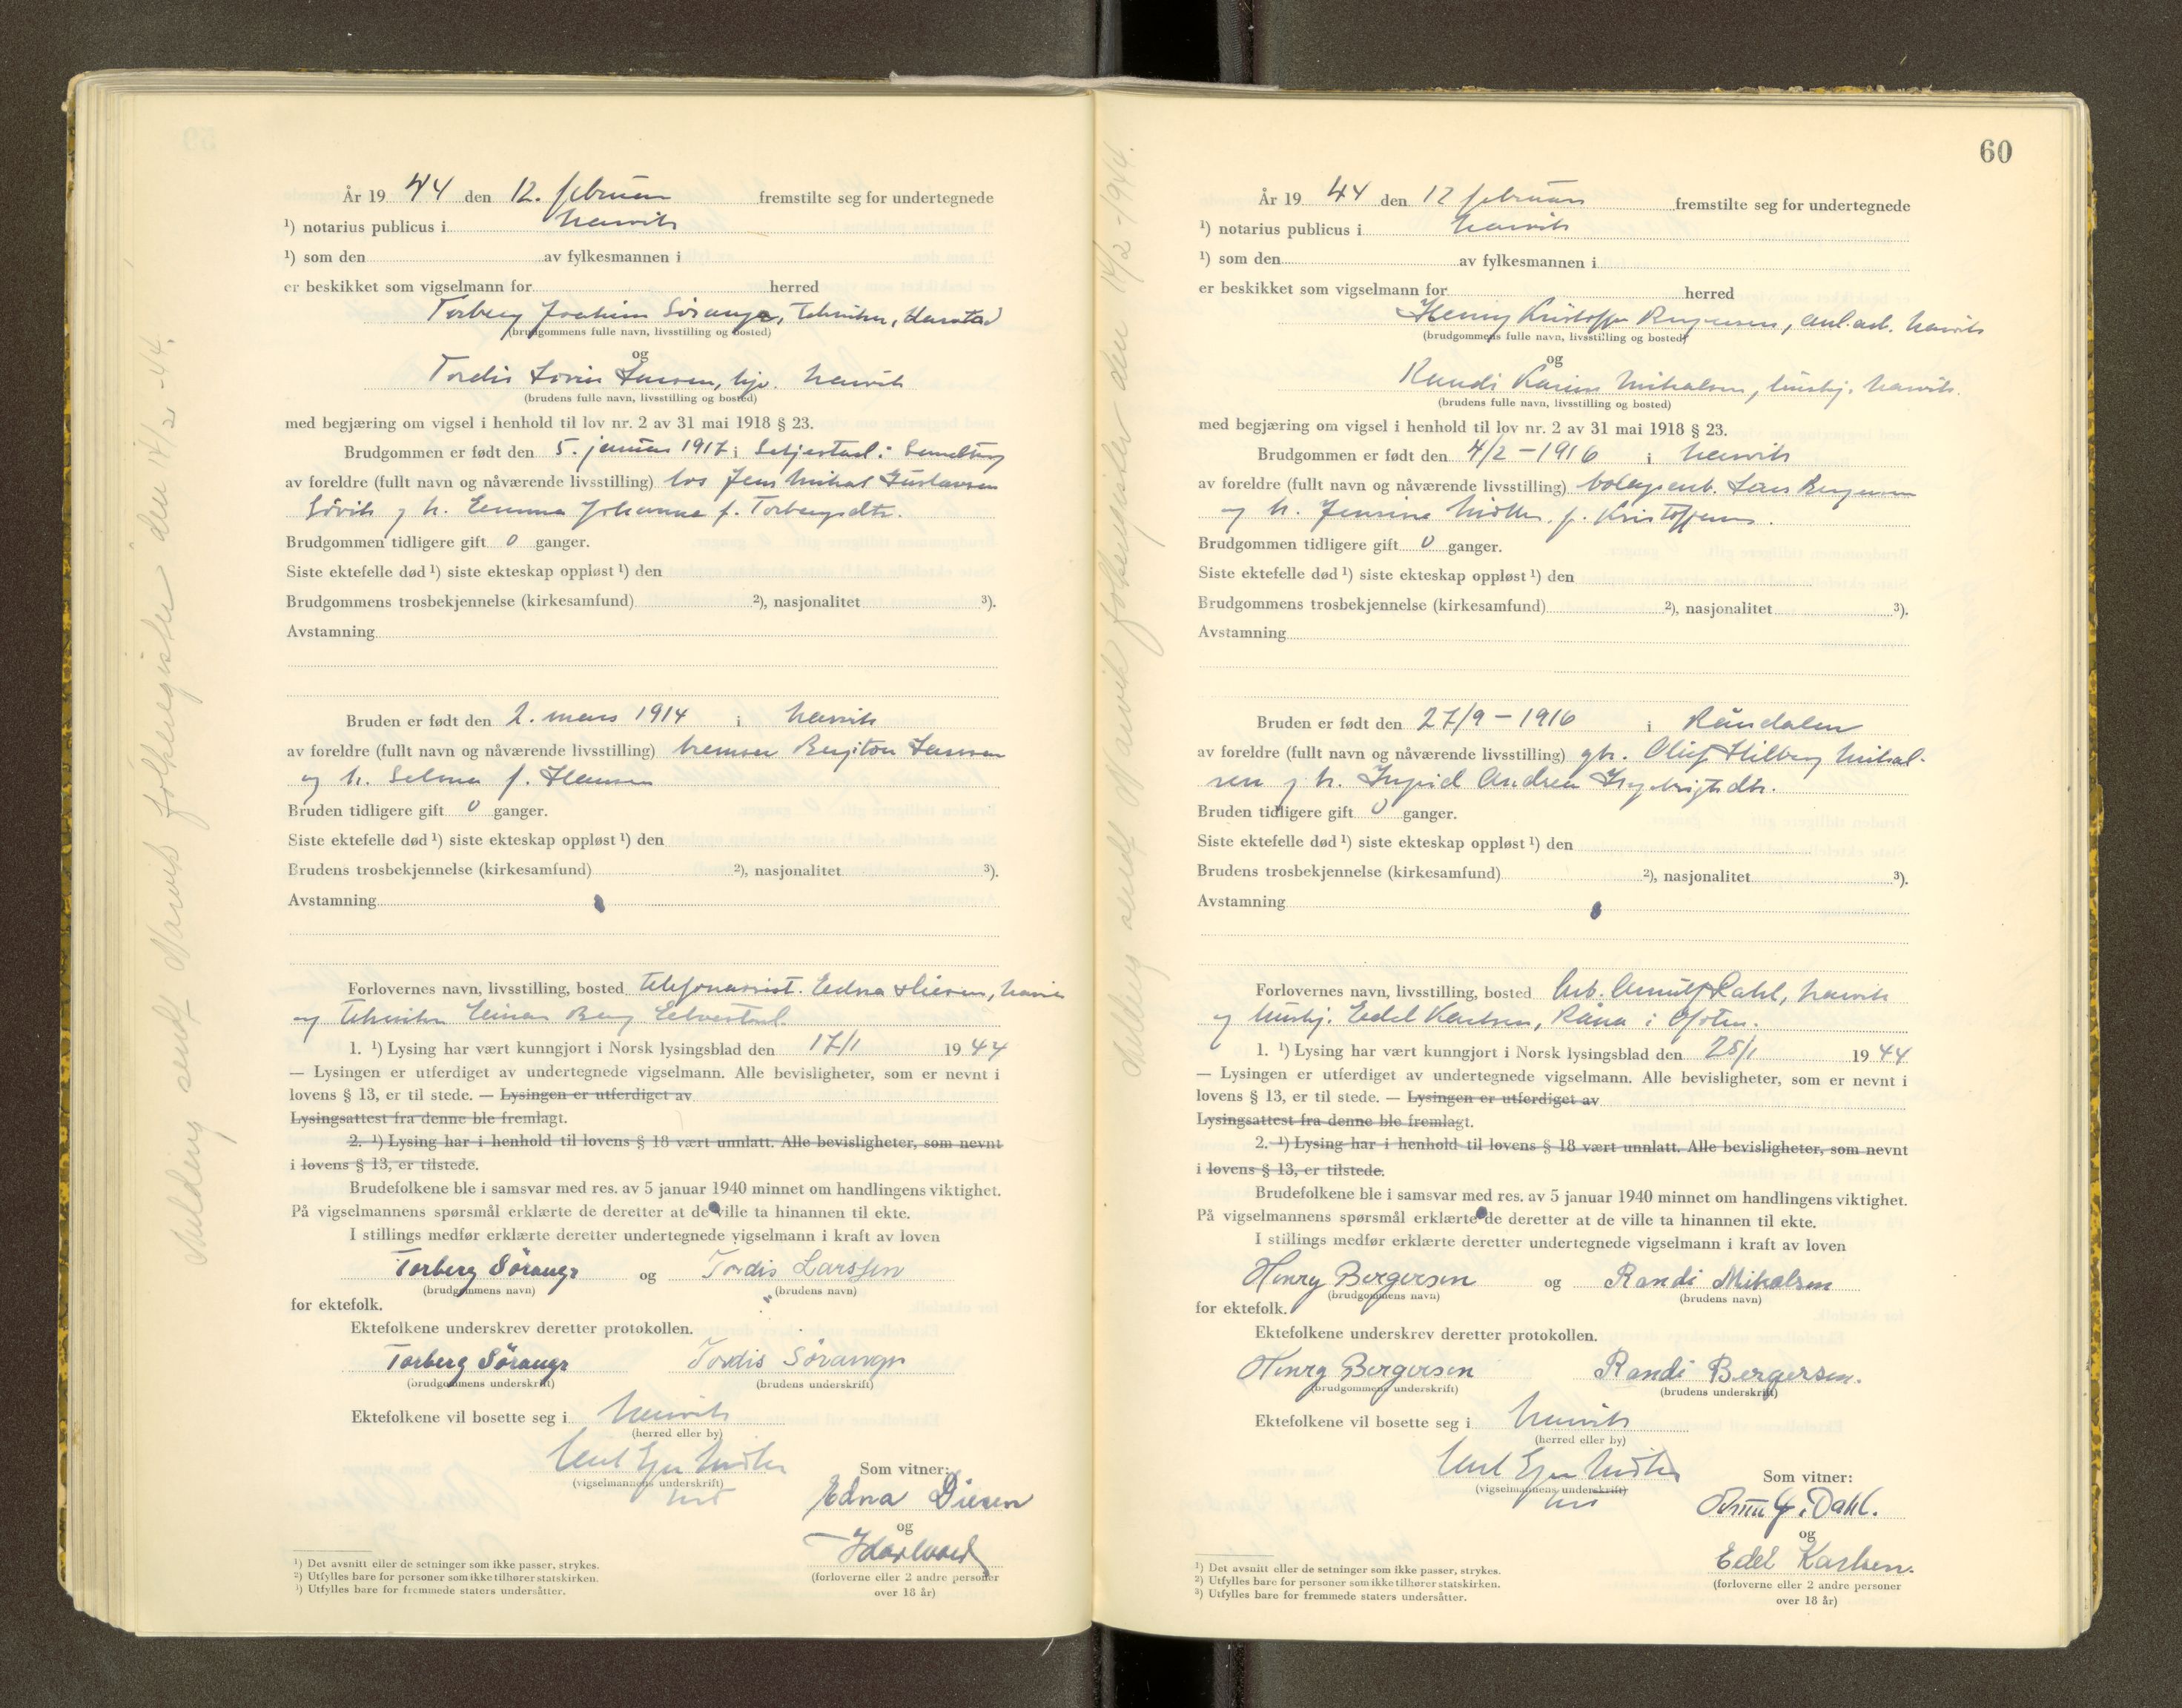 År 19 44 den 12. februar fremstilte seg for undertegnede
¹) notarius publicus i Narvik
¹) som den av fylkesmannen i
er beskikket som vigselmann for herred
Torberg Joakim Sørange, Tekniker, Harstad
(brudgommens fulle navn, livsstilling og bosted)
og
Tordis Larsen, Narvik
(brudens fulle navn, livsstilling og bosted)
med begjæring om vigsel i henhold til lov nr. 2 av 31 mai 1918 § 23.
Brudgommen er født den 5. januar 1917 i
av foreldre (fullt navn og nåværende livsstilling) los Jens Mikal Gustavsen
og h. Emma Johanna f. Torbergsdtr.
Brudgommen tidligere gift 0 ganger.
Siste ektefelle død ¹) siste ekteskap oppløst ¹) den
Brudgommens trosbekjennelse (kirkesamfund) ²), nasjonalitet ³).
Avstamning
Bruden er født den 2. mars 1914 i Narvik
av foreldre (fullt navn og nåværende livsstilling) bremser Larsen
og h. Selma f. Hansen
Bruden tidligere gift 0 ganger.
Siste ektefelle død ¹) siste ekteskap oppløst ¹) den
Brudens trosbekjennelse (kirkesamfund) ²), nasjonalitet ³).
Avstamning
Forlovernes navn, livsstilling, bosted Edna Diesen, Narvik
og Tekniker Einar Berg
1. ¹) Lysing har vært kunngjort i Norsk lysingsblad den 17/1 19 44
— Lysingen er utferdiget av undertegnede vigselmann. Alle bevisligheter, som er nevnt i
lovens § 13, er til stede. — Lysingen er utferdiget av
Lysingsattest fra denne ble fremlagt.
2. ¹) Lysing har i henhold til lovens § 18 vært unnlatt. Alle bevisligheter, som nevnt
i lovens § 13, er tilstede.
Brudefolkene ble i samsvar med res. av 5 januar 1940 minnet om handlingens viktighet.
På vigselmannens spørsmål erklærte de deretter at de ville ta hinannen til ekte.
I stillings medfør erklærte deretter undertegnede vigselmann i kraft av loven
Torberg Sørange og Tordis Larssen
(brudgommens navn) (brudens navn)
for ektefolk.
Ektefolkene underskrev deretter protokollen.
Torberg Sørange Tordis Sørange
(brudgommens underskrift) (brudens underskrift)
Ektefolkene vil bosette seg i Narvik
(herred eller by)
(vigselmannens underskrift)
Som vitner:
Edna Diesen
og
(forloverne eller 2 andre personer
over 18 år)
¹) Det avsnitt eller de setninger som ikke passer, strykes.
²) Utfylles bare for personer som ikke tilhører statskirken.
³) Utfylles bare for fremmede staters undersåtter.
Melding sendt Narvik folkeregister den 14/2 -44.
60
År 19 44 den 12 februar fremstilte seg for undertegnede
¹) notarius publicus i Narvik
¹) som den av fylkesmannen i
er beskikket som vigselmann for herred
Henry Kristoffer Bergersen, anl.arb. Narvik
(brudgommens fulle navn, livsstilling og bosted)
og
Randi Karine Mikalsen, hushj. Narvik.
(brudens fulle navn, livsstilling og bosted)
med begjæring om vigsel i henhold til lov nr. 2 av 31 mai 1918 § 23.
Brudgommen er født den 4/2 - 1916 i Narvik
av foreldre (fullt navn og nåværende livsstilling) Bergersen
og h. Jensine f. Kristoffersen.
Brudgommen tidligere gift 0 ganger.
Siste ektefelle død ¹) siste ekteskap oppløst ¹) den
Brudgommens trosbekjennelse (kirkesamfund) ²), nasjonalitet ³).
Avstamning
Bruden er født den 27/9 - 1916 i Råndalen
av foreldre (fullt navn og nåværende livsstilling) gbr. Oluf Hilberg Mikal-
sen og h. Ingrid Andrea Ingebrigtsdtr.
Bruden tidligere gift 0 ganger.
Siste ektefelle død ¹) siste ekteskap oppløst ¹) den
Brudens trosbekjennelse (kirkesamfund) ²), nasjonalitet ³).
Avstamning
Forlovernes navn, livsstilling, bosted Arb. Arnulf Dahl, Narvik
og hushj. Edel Karlsen, Råna i Ofoten.
1. ¹) Lysing har vært kunngjort i Norsk lysingsblad den 25/1 19 44
— Lysingen er utferdiget av undertegnede vigselmann. Alle bevisligheter, som er nevnt i
lovens § 13, er til stede. — Lysingen er utferdiget av
Lysingsattest fra denne ble fremlagt.
2. ¹) Lysing har i henhold til lovens § 18 vært unnlatt. Alle bevisligheter, som nevnt
i lovens § 13, er tilstede.
Brudefolkene ble i samsvar med res. av 5 januar 1940 minnet om handlingens viktighet.
På vigselmannens spørsmål erklærte de deretter at de ville ta hinannen til ekte.
I stillings medfør erklærte deretter undertegnede vigselmann i kraft av loven
Henry Bergersen og Randi Mikalsen
(brudgommens navn) (brudens navn)
for ektefolk.
Ektefolkene underskrev deretter protokollen.
Henry Bergersen Randi Bergersen.
(brudgommens underskrift) (brudens underskrift)
Ektefolkene vil bosette seg i Narvik
(herred eller by)
(vigselmannens underskrift)
Som vitner:
Arnulf Dahl.
og
Edel Karlsen.
(forloverne eller 2 andre personer
over 18 år)
¹) Det avsnitt eller de setninger som ikke passer, strykes.
²) Utfylles bare for personer som ikke tilhører statskirken.
³) Utfylles bare for fremmede staters undersåtter.
Melding sendt Narvik folkeregister den 14/2 -1944.